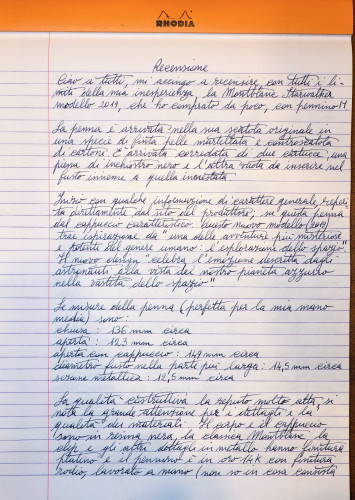 RHODIA
Recensione
Ciao a tutti, mi accingo a recensire con tutti i li-
miti della mia inesperienza la Montblanc Starwalker
modello 2019, che ho comprato da poco, con pennino M.
La penna è arrivata nella sua scatola originale in
una specie di finta pelle martellata e controscatola
di cartone. È arrivata corredata di due cartucce, una
piena di inchiostro nero e l'altra vuota da inserire nel
fusto insieme a quella innestata.
Inizio con qualche informazione di carattere generale, reperi-
ta direttamente dal sito del produttore, su questa penna
dal cappuccio caratteristico. Questo nuovo modello (2019)
trae ispirazione da "una delle avventure più misteriose
e potenti del genere umano: l'esplorazione dello spazio".
Il nuovo design "celebra l'emozione descritta dagli
astronauti alla vista del nostro pianeta azzurro
nella vastità dello spazio"
Le misure della penna (perfetta per la mia mano
media) sono:
chiusa: 136 mm circa
aperta: 123 mm circa
aperta con cappuccio: 149 mm circa
diametro fusto nella parte più larga: 14,5 mm circa
sezione metallica: 12,5 mm circa
La qualità costruttiva la reputo molto alta, si
nota la grande attenzione per i dettagli e la
qualità dei materiali. Il corpo e il cappuccio
sono in resina nera, la classica Montblanc, la
clip e gli altri dettagli in metallo hanno finitura
platino e il pennino è in oro 14K con finitura
rodio, lavorato a mano (non so in cosa consista